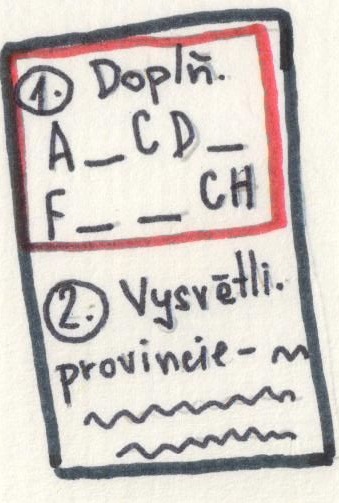 1. Doplň.
A _ C D _
F _ _ CH
2. Vysvětli.
provincie -